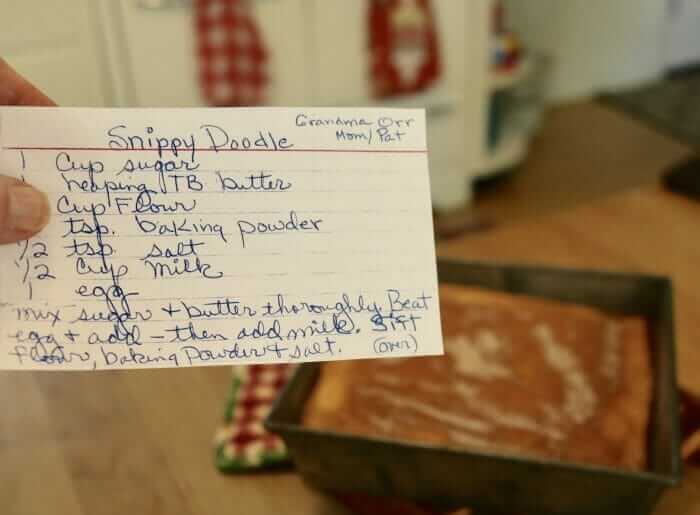 Grandma Orr
Mom/Pat
Snippy Doodle
1 Cup sugar
1 heaping TB butter
Cup Flour
tsp. baking powder
1/2 tsp. salt
1/2 cup milk
1 egg
mix sugar + butter thoroughly. Beat
egg + add - then add milk. Sift
flour, baking powder + salt. (over)